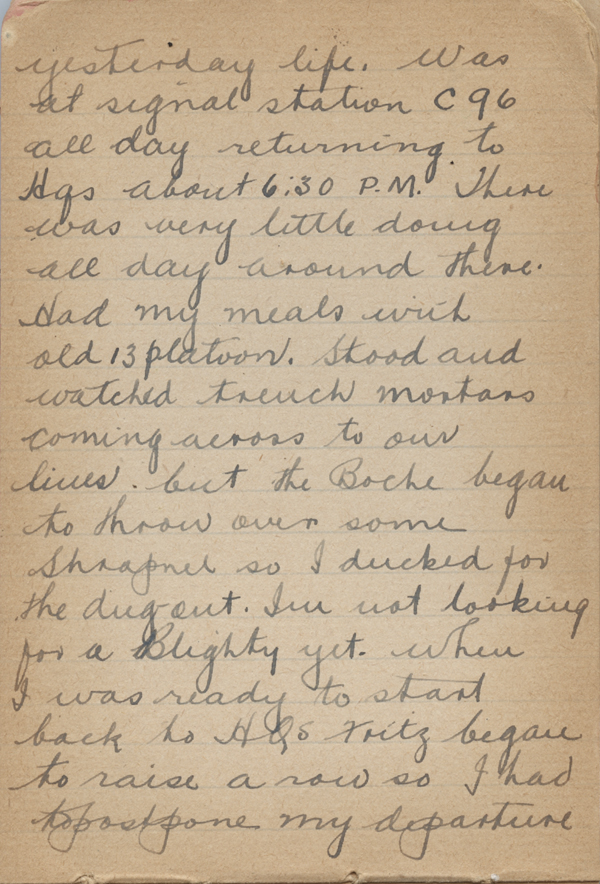 yesterday life. Was
at signal station C 96
all day returning to
Hqs about 6:30 P.M. There
was very little doing
all day around there.
Had my meals with
old 13 platoon. Stood and
watched trench mortars
coming across to our
lines. but the Boche began
to throw over some
Shrapnel so I ducked for
the dug-out. Im not looking
for a Blighty yet. When
I was ready to start
back to HQs Fritz began
to raise a row so I had
to postpone my departure